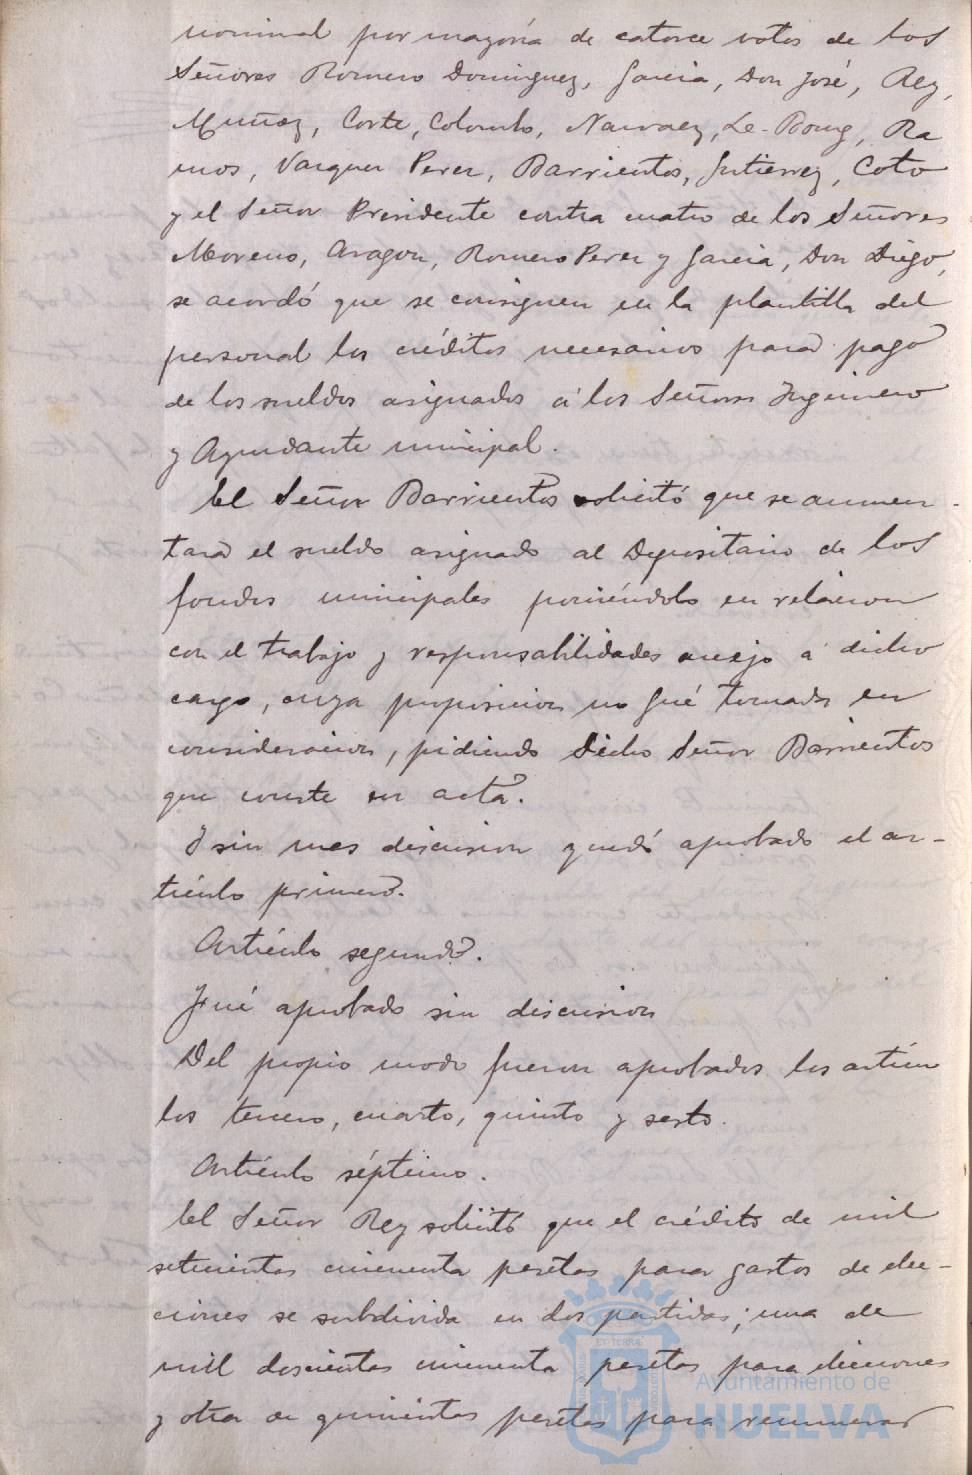 nominal por mayoría de catorce votos de los
Señores Romero Dominguez, Garcia, Don José, Rey,
Muñoz, Corte, Colombo, Narvaez, Le-Bourg, Ra
mos, Vazquez Perez, Barrientos, Gutierrez, Coto
y el Señor Presidente contra cuatro de los Señores
Moreno, Aragon, Romero Perez y Garcia, Don Diego,
se acordó que se consignen en la plantilla del
personal los créditos necesarios para pago
de los sueldos asignados á los Señores Ingeniero
y Ayudante municipal.
El Señor Barrientos solicitó que se aumen-
tara el sueldo asignado al Depositario de los
fondos municipales poniéndolo en relacion
con el trabajo y responsabilidades anejo a dicho
cargo, cuya proposicion no fué tomada en
consideracion, pidiendo dicho Señor Barrientos
que conste en acta.
Y sin mas discusion quedó aprobado el ar-
tículo primero.
Artículo segundo.
Fué aprobado sin discusion
Del propio modo fueron aprobados los artícu
los tercero, cuarto, quinto y sesto.
Artículo séptimo.
El Señor Rey solicitó que el crédito de mil
setecientas cincuenta pesetas para gastos de elec-
ciones se subdivida en dos partidas; una de
mil doscientas cincuenta pesetas para elecciones
y otra de quinientas pesetas para remunerar
Ayuntamiento de
HUELVA